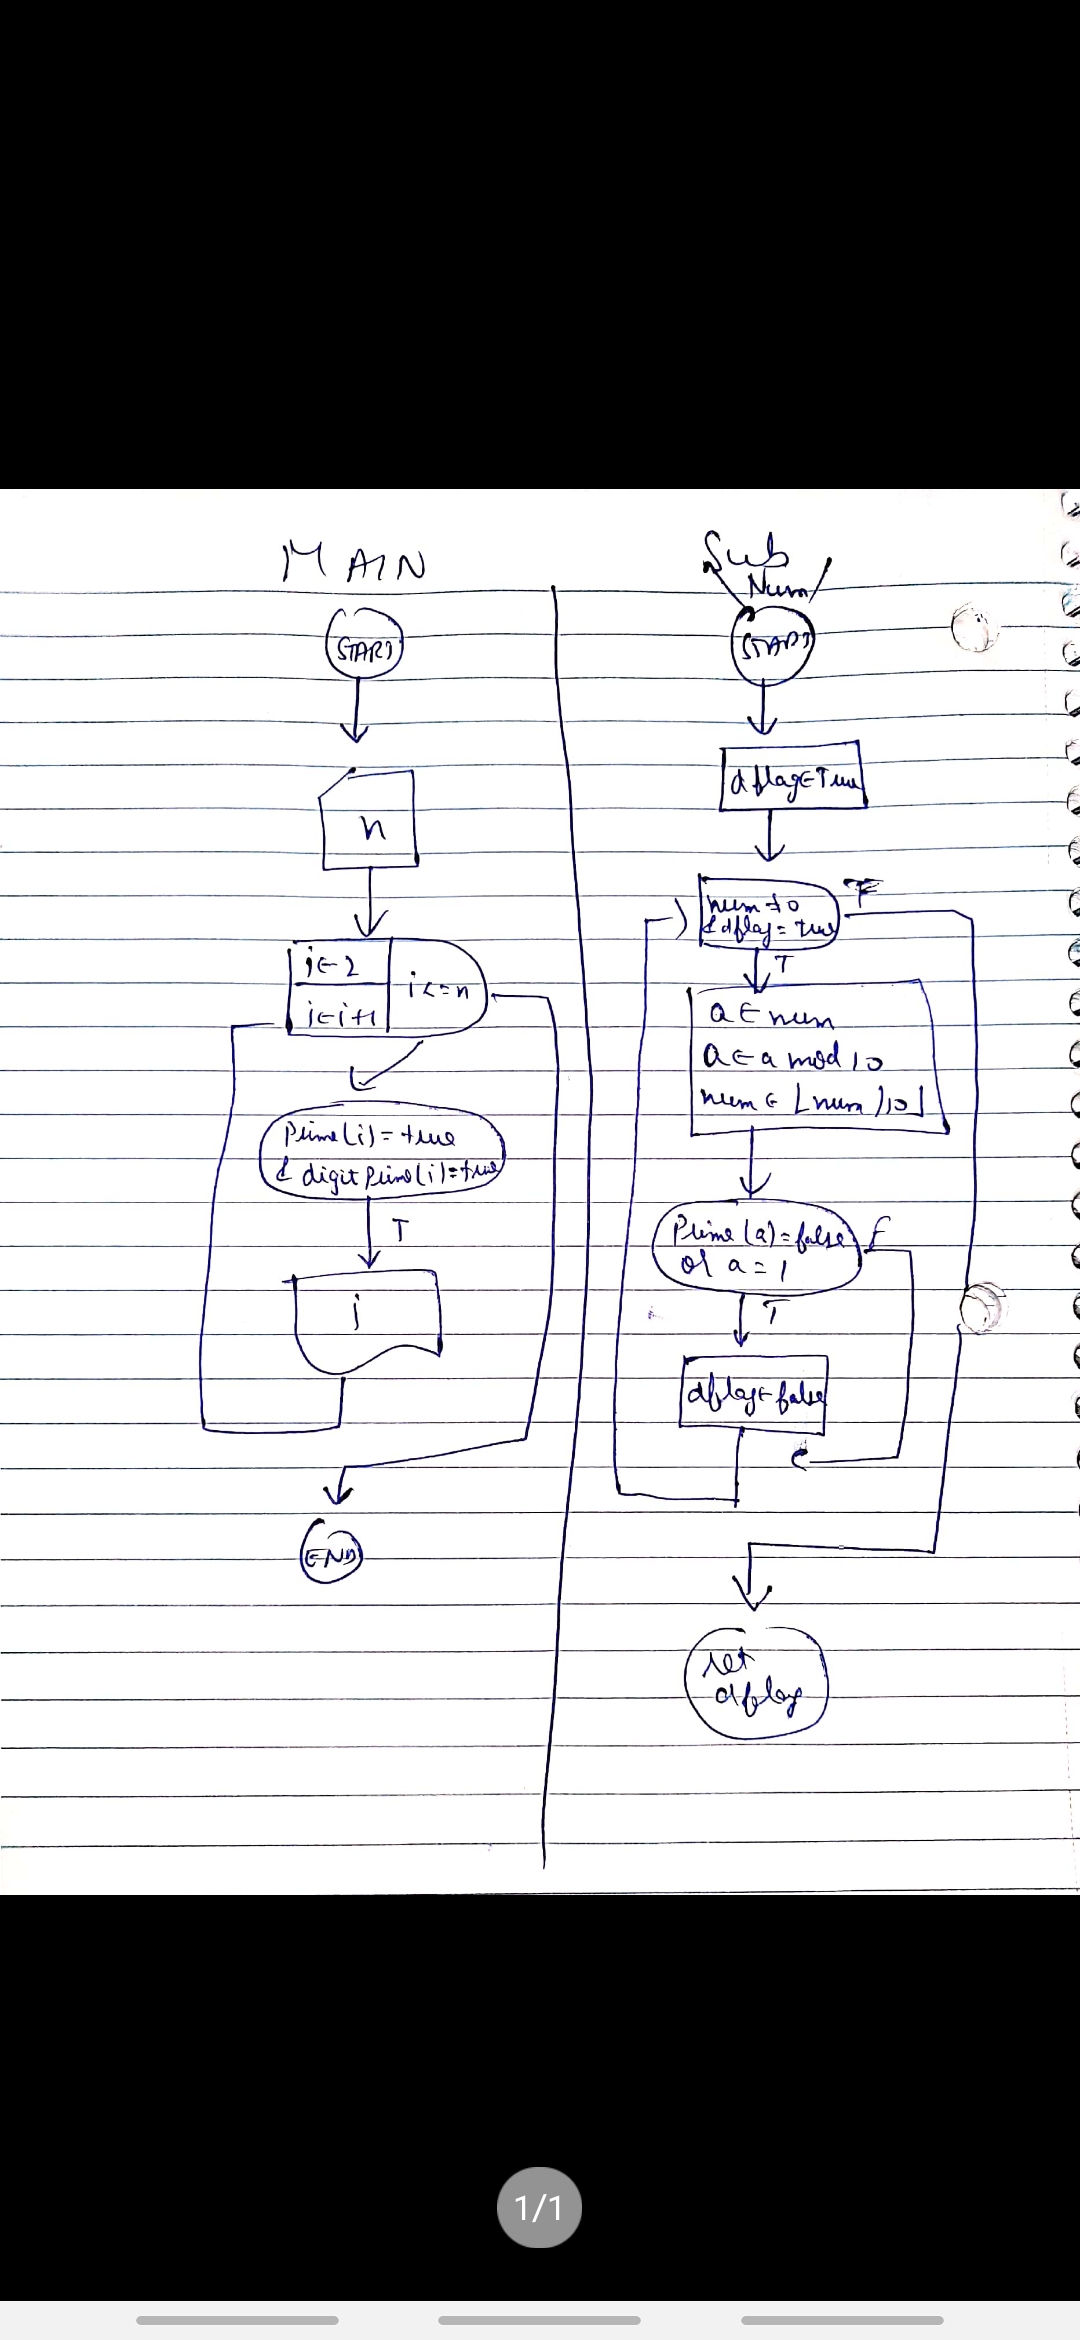 MAIN
START
n
i←2
i←i+1
i<=n
Prime(i)=true
& digitprime(i)=true
T
i
END
Sub
Num
START
dflag←True
num≠0
& dflag=true
F
T
a←num
a←a mod 10
num←⌊num/10⌋
Prime(a)=false
or a=1
F
T
dflag←false
ret
dflag
1/1